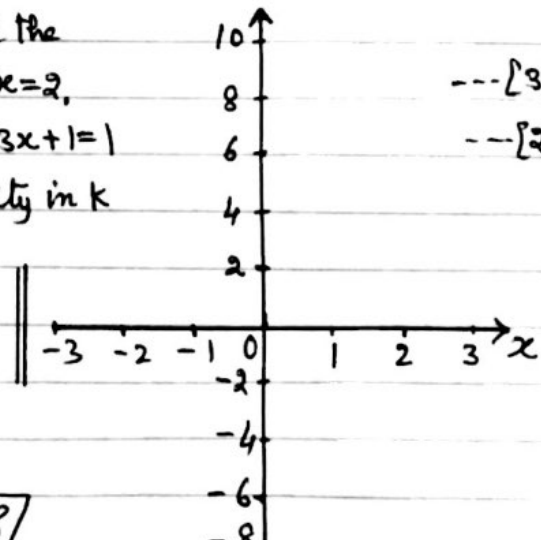 the
x=2,
3x+1=1
ty in k
10
8
6
4
2
-3 -2 -1 0 1 2 3 x
-2
-4
-6
-8
---[3
---[2